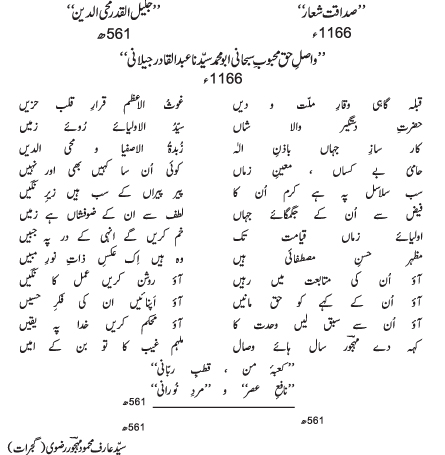 ’’صداقت شعار‘‘ ’’جلیل القدر محی الدین‘‘
1166ء 561ھ
’’واصلِ حق محبوبِ سبحانی ابو محمد سیّدنا عبدالقادر جیلانی‘‘
1166ء
قبلہ گاہی وقارِ ملّت و دیں غوث الاعظم قرارِ قلب حزیں
حضرتِ دستگیر والا شاں سیّدُ الاولیائے روئے زمیں
کار سازِ جہاں باذنِ الٰہ زبدۃُ الاصفیا و محی الدیں
حامئ بے کساں ، معینِ زماں کوئی اُن سا کہیں بھی اور نہیں
سب سلاسل پہ ہے کرم اُن کا پیر پیراں کے سب ہیں زیرِ نگیں
فیض سے اُن کے جگمگائے جہاں لطف سے ان کے ضوفشاں ہے زمیں
اولیائے زماں قیامت تک خم کریں گے انہی کے در پہ جبیں
مظہرِ حسنِ مصطفائی ہیں وہ ہیں اِک عکسِ ذاتِ نورِ مبیں
آؤ اُن کی متابعت میں رہیں آؤ روشن کریں عمل کا نگیں
آؤ اُن کے کہے کو حق مانیں آؤ اَپنائیں ان کی فکرِ حسیں
آؤ اُن سے سبق لیں وحدت کا آؤ محکم کریں خدا پہ یقیں
کہہ دے مہجورؔ سال ہائے وصال ملہمِ غیب کا تو بن کے امیں
’’کعبۂ من ، قطبِ ربّانی‘‘
561ھ
’’نافعِ عصر‘‘ و ’’مردِ نورانی‘‘
561ھ 561ھ
سیّد عارف محمود مہجورؔ رضوی (گجرات)